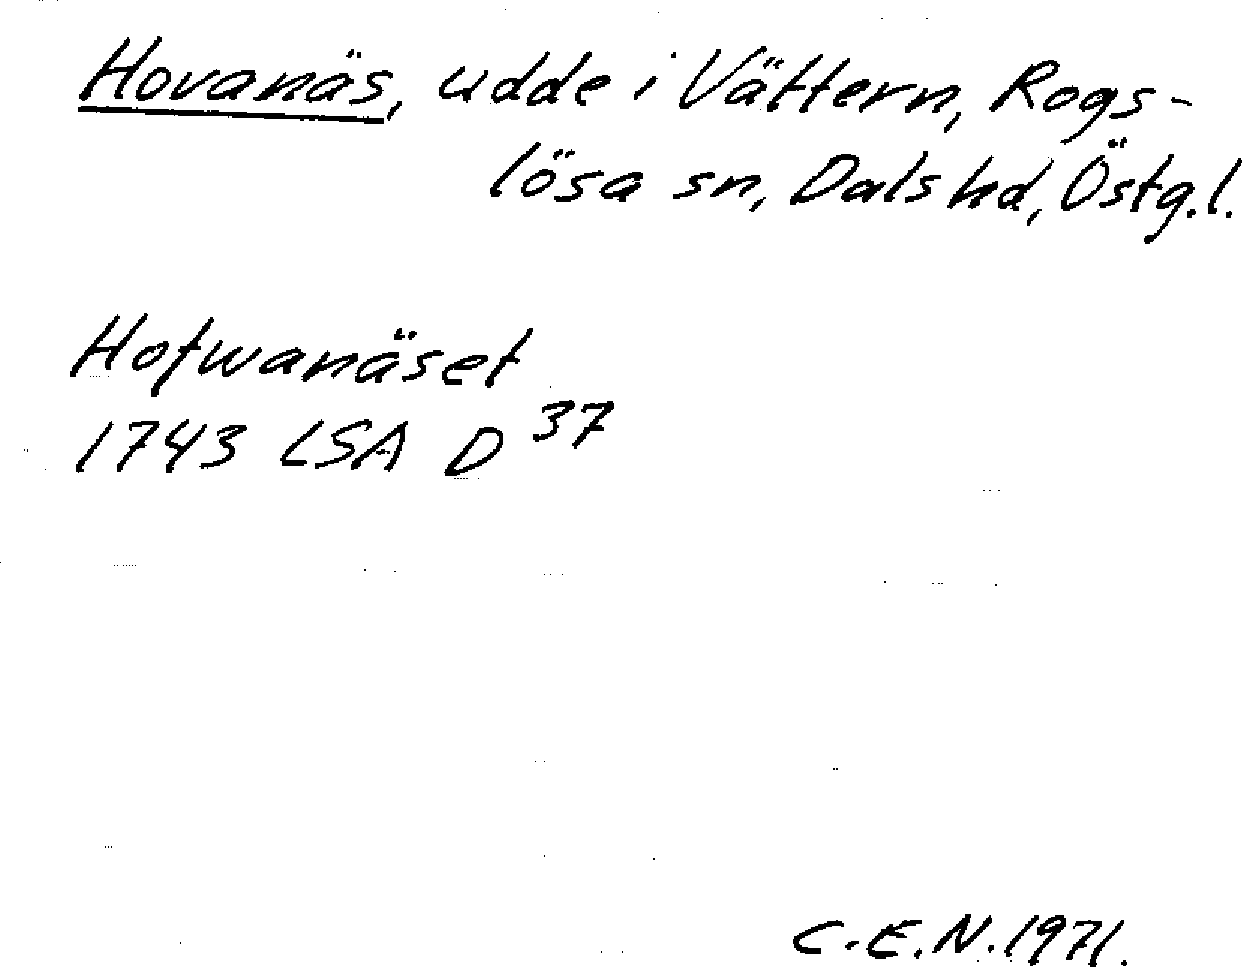 Hovanäs, udde i Vättern, Rogs-
lösa sn, Dals hd, Östg.l.
Hofwanäset
1743 LSA D 37
C.E.N. 1971.